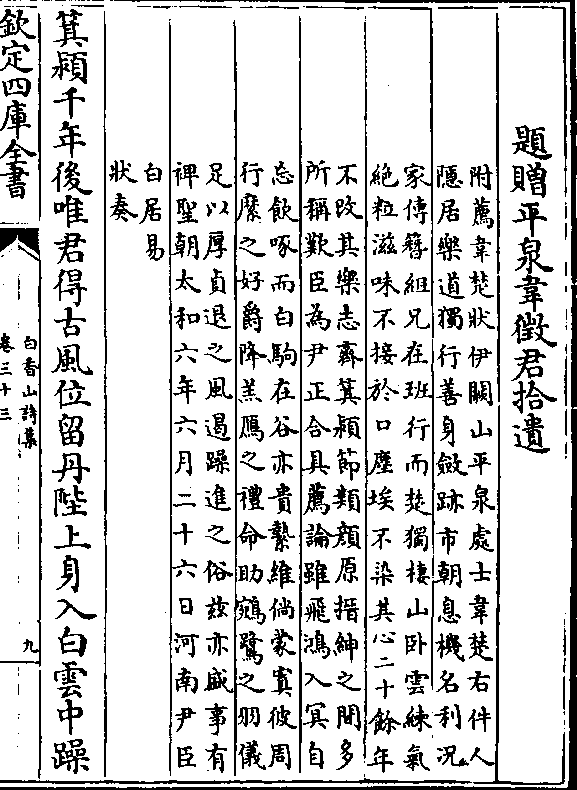 題贈平泉韋徵君拾遺
附薦韋楚狀伊闕山平泉處士韋楚右件人
隱居樂道獨行善身斂跡市朝息機名利況
家傳簪組兄在班行而楚獨棲山卧雲練氣
絶粒滋味不接於口塵埃不染其心二十餘年
不改其樂志齊箕頴節類顔原搢紳之間多
所稱歎臣為尹正合具薦論雖飛鴻入冥自
忘飲啄而白駒在谷亦貴縶維倘蒙寘彼周
行縻之好爵降羔鴈之禮命助鵷鷺之羽儀
足以厚貞退之風遏躁進之俗兹亦盛事有
裨聖朝太和六年六月二十六日河南尹臣
白居易
狀奏
箕頴千年後唯君得古風位留丹陛上身入白雲中躁
欽定四庫全書
白香山詩集
卷三十三
九